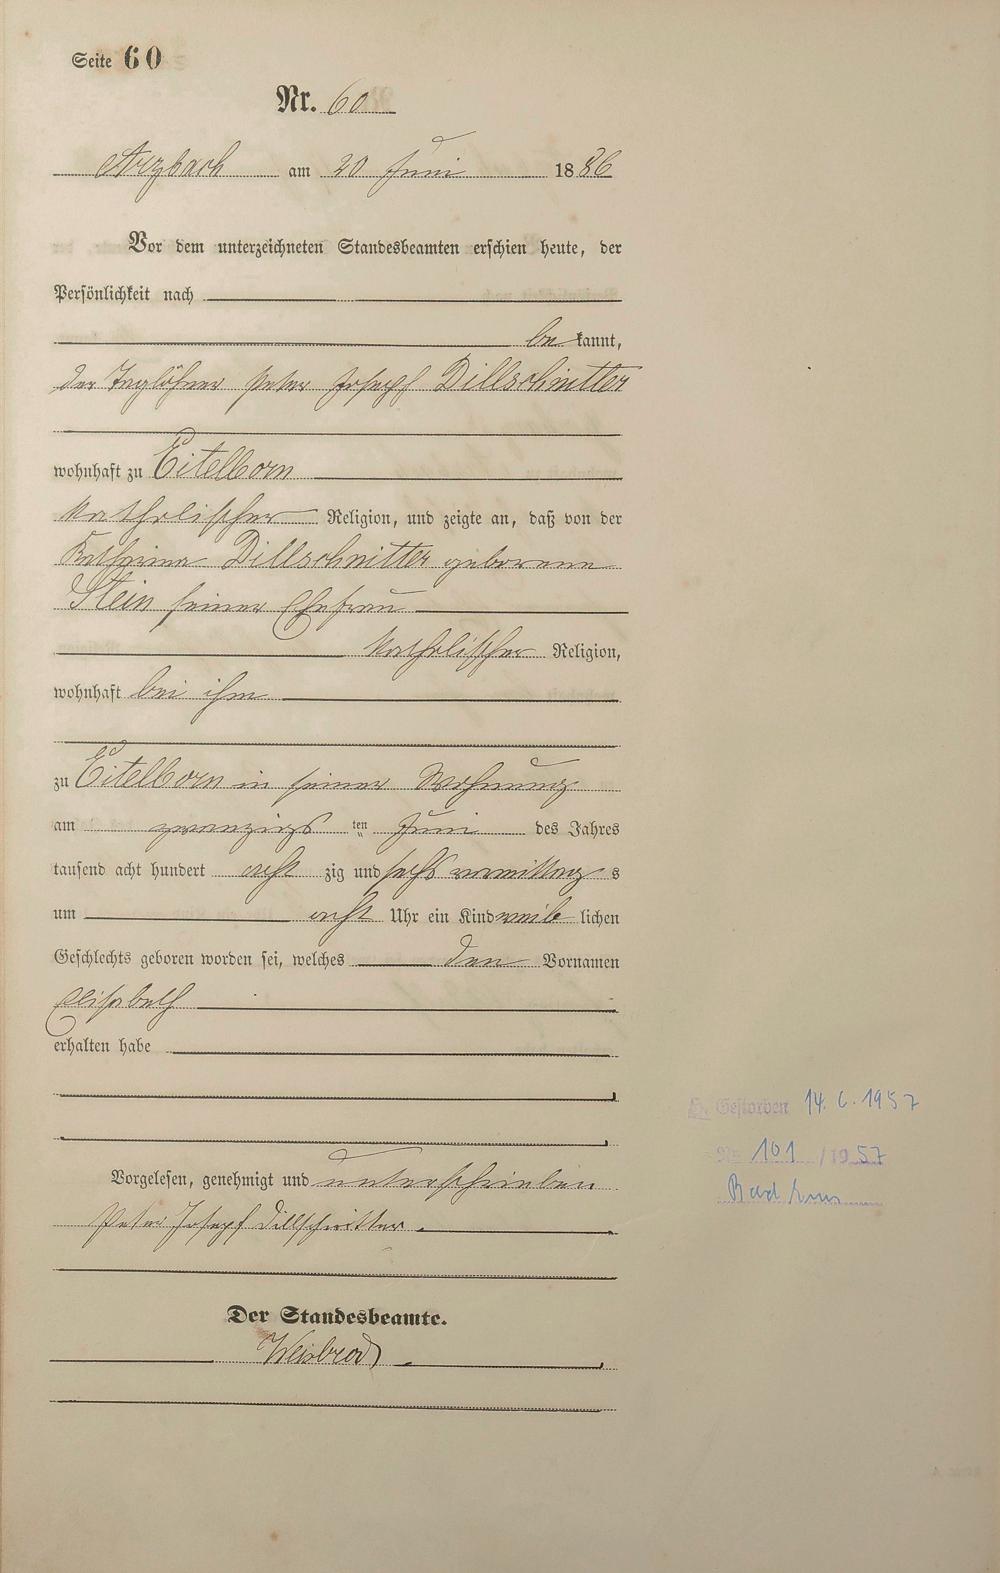 Seite 60
Nr. 60
Arzbach am 20 Juni 1886
Vor dem unterzeichneten Standesbeamten erschien heute, der
Persönlichkeit nach
be kannt,
der Taglöhner Peter Josef Dillschnitter
wohnhaft zu Eitelborn
katholischer Religion, und zeigte an, daß von der
Katharina Dillschnitter geborene
Stein seiner Ehefrau
katholischer Religion,
wohnhaft bei ihm
zu Eitelborn in seiner Wohnung
am zwanzigs ten Juni des Jahres
tausend acht hundert acht zig und sechs vormittag s
um acht Uhr ein Kind weib lichen
Geschlechts geboren worden sei, welches den Vornamen
Elisabeth
erhalten habe
Vorgelesen, genehmigt und unterschrieben
Peter Josepf Dillschnitter.
Der Standesbeamte.
Weisbrod
Gestorben 14. 6. 1957
Nr. 101 /1957
Bad Ems